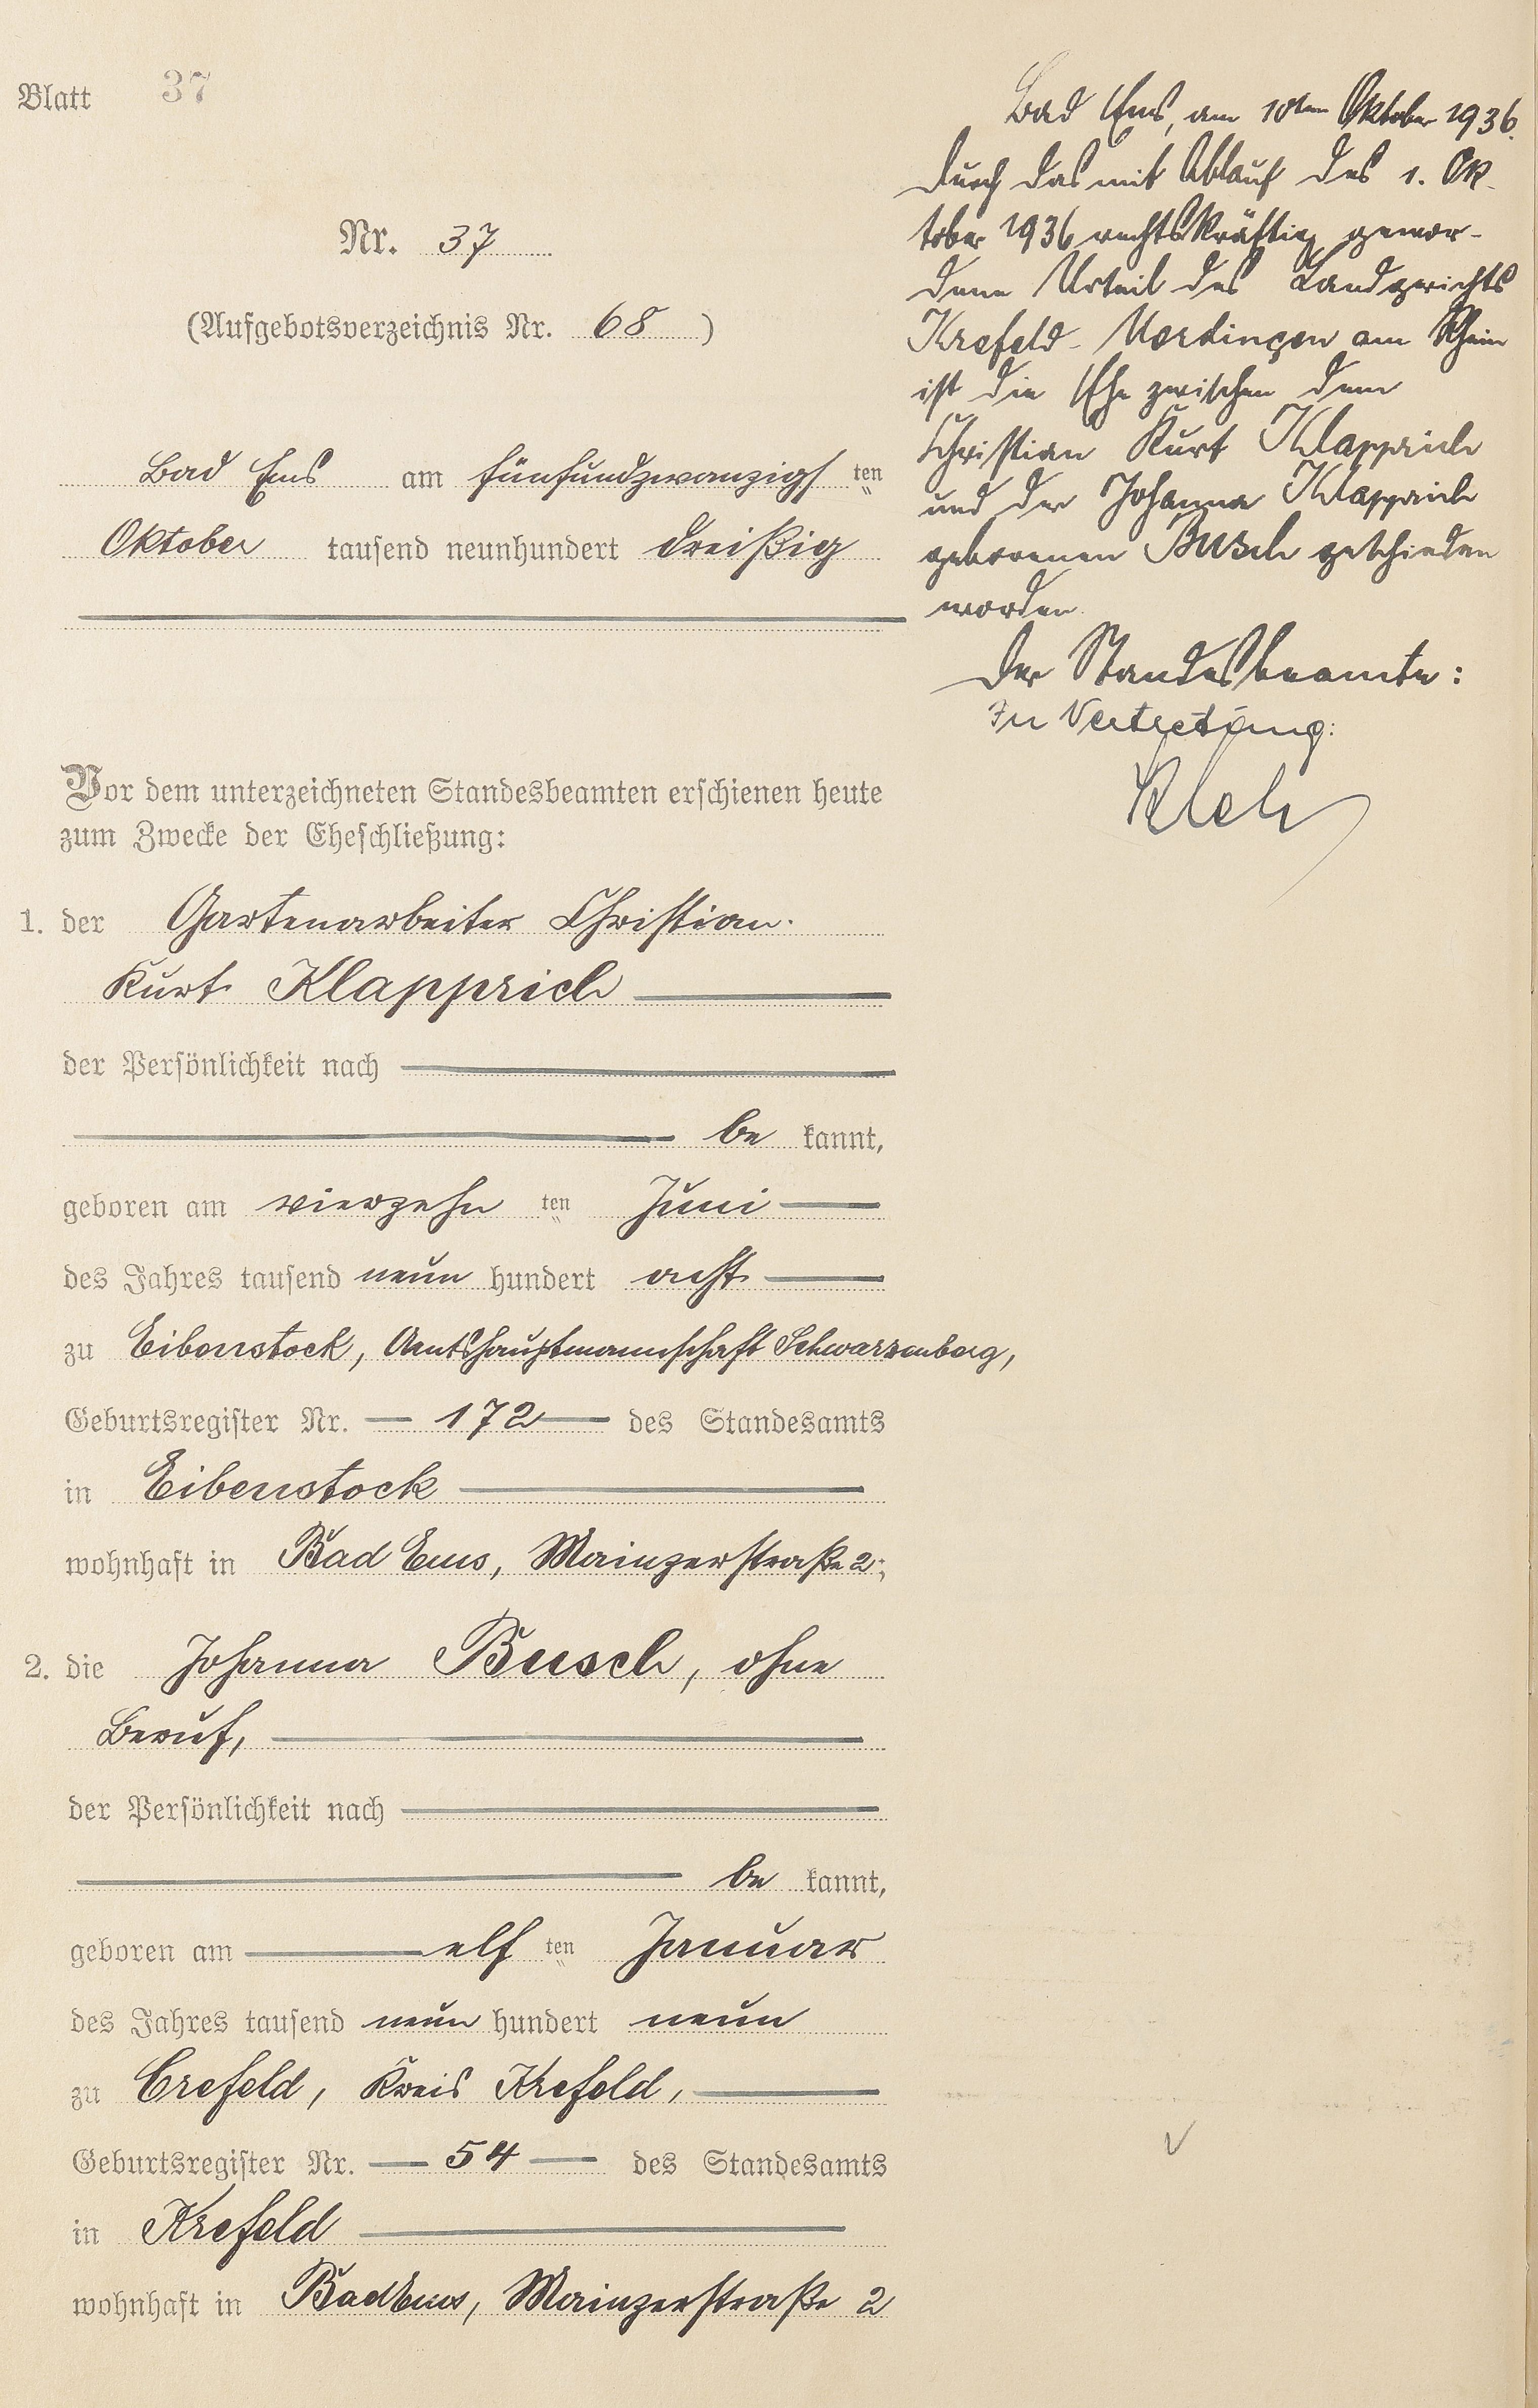 Blatt 37
Nr. 37
(Aufgebotsverzeichnis Nr. 68)
Bad Ems am fünfundzwanzigsten
Oktober tausend neunhundert dreißig
Vor dem unterzeichneten Standesbeamten erschienen heute
zum Zwecke der Eheschließung:
1. der Gartenarbeiter Christian
Kurt Klapprich
der Persönlichkeit nach
be kannt,
geboren am vierzehn ten Juni
des Jahres tausend neun hundert acht
zu Eibenstock, Amtshauptmannschaft Schwarzenberg,
Geburtsregister Nr. 172 des Standesamts
in Eibenstock
wohnhaft in Bad Ems, Mainzerstraße 2;
2. die Johanna Busch, ohne
Beruf,
der Persönlichkeit nach
be kannt,
geboren am elf ten Januar
des Jahres tausend neun hundert neun
zu Crefeld, Kreis Krefeld,
Geburtsregister Nr. 54 des Standesamts
in Krefeld
wohnhaft in Bad Ems, Mainzerstraße 2
Bad Ems, am 10ten Oktober 1936.
Durch das mit Ablauf des 1. Ok-
tober 1936 rechtskräftig gewor-
dene Urteil des Landgerichts
Krefeld-Uerdingen am Rhein
ist die Ehe zwischen dem
Christian Kurt Klapprich
und der Johanna Klapprich
geborenen Busch geschieden
worden.
Der Standesbeamte:
In Vertretung: